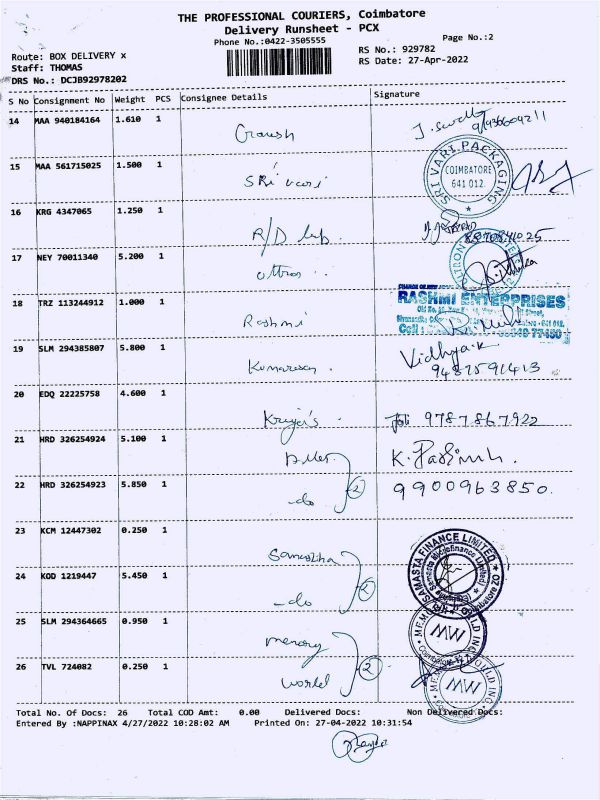 THE PROFESSIONAL COURIERS, Coimbatore
Delivery Runsheet - PCX
Phone No.:0422-3505555
Page No.:2
Route: BOX DELIVERY x
RS No.: 929782
Staff: THOMAS
RS Date: 27-Apr-2022
DRS No.: DCJB92978202
S No Consignment No Weight PCS Consignee Details Signature
14 MAA 940184164 1.610 1
Ganesh
15 MAA 561715025 1.500 1
SRi vari
SRI VARI PACKAGING
COIMBATORE
641 012.
16 KRG 4347065 1.250 1
R/D
17 NEY 70011340 5.200 1
18 TRZ 113244912 1.000 1
Rashmi
RASHMI ENTERPRISES
19 SLM 294385807 5.800 1
Vidhya.K
9487591413
20 EDQ 22225758 4.600 1
9787867922
21 HRD 326254924 5.100 1
K.
22 HRD 326254923 5.850 1
-do 2
9900963850.
23 KCM 12447302 0.250 1
Samastha
SAMASTA FINANCE LIMITED
24 KOD 1219447 5.450 1
-do 2
25 SLM 294364665 0.950 1
memory
MW
26 TVL 724082 0.250 1
world 2
MW
Total No. Of Docs: 26 Total COD Amt: 0.00 Delivered Docs: Non Delivered Docs:
Entered By :NAPPINAX 4/27/2022 10:28:02 AM Printed On: 27-04-2022 10:31:54